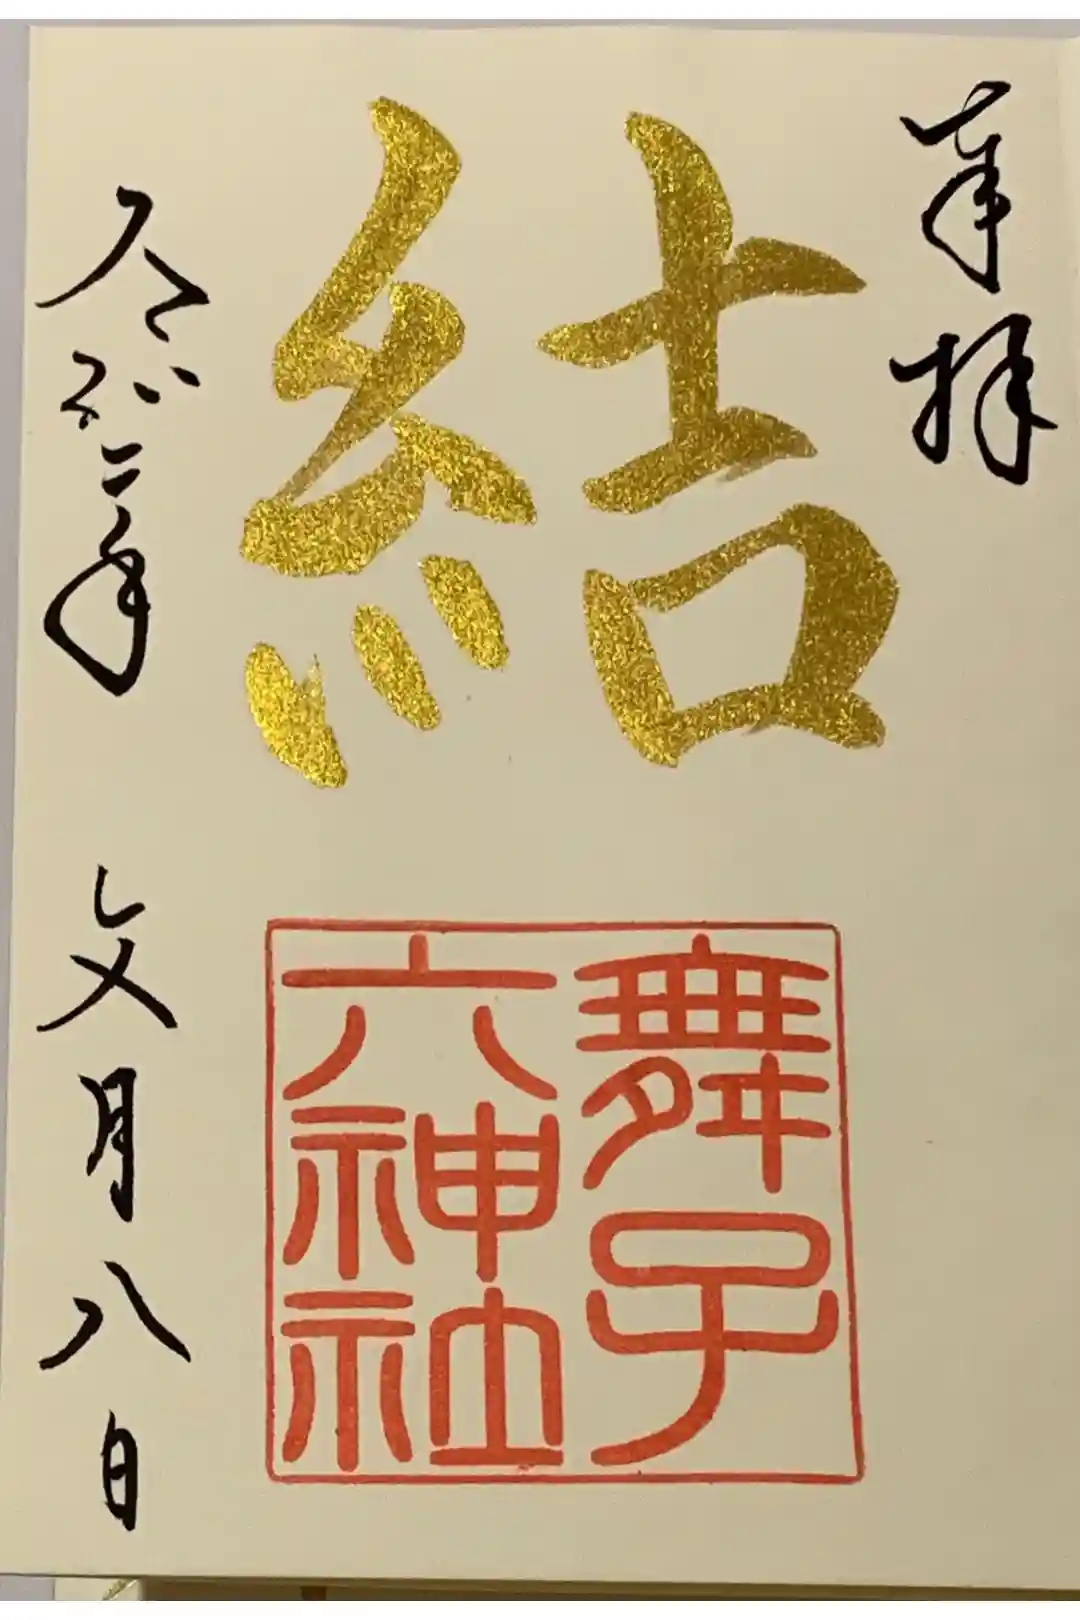 奉拝
結
舞子
六神社
令和二年 文月八日